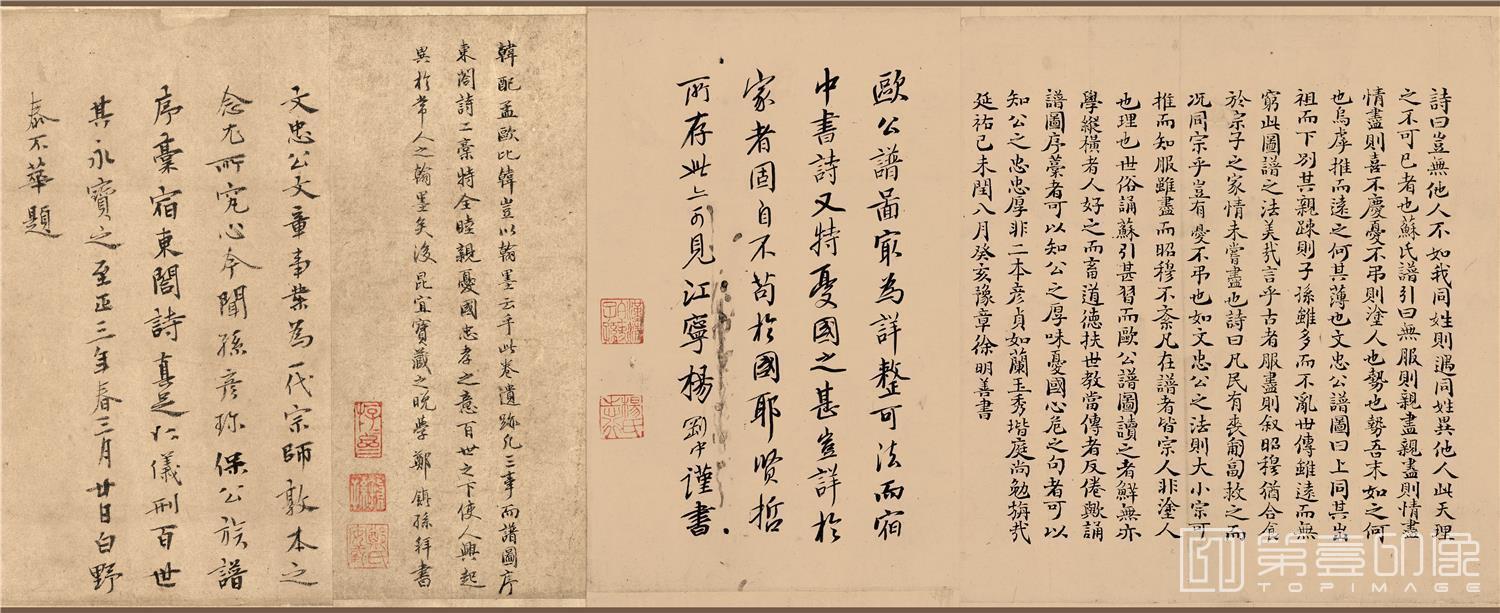 詩曰豈無他人不如我同姓則遇同姓異他人此天理
之不可已者也蘇氏譜引曰無服則親盡親盡則情盡
情盡則喜不慶憂不弔則塗人也勢也勢吾末如之何
也烏虖推而遠之何其薄也文忠公譜圖曰上同其出
祖而下別其親疎則子孫雖多而不亂世傳雖遠而無
窮此圖譜之法美哉言乎古者服盡則叙昭穆猶合食
於宗子之家情未嘗盡也詩曰凡民有喪匍匐救之而
况同宗乎豈有憂不弔也如文忠公之法則大小宗可
推而知服雖盡而昭穆不紊凡在譜者皆宗人非塗人
也理也世俗誦蘇引甚習而歐公譜圖讀之者鮮無亦
學縱橫者人好之而畜道德扶世教當傳者反倦歟誦
譜圖序藁者可以知公之厚味憂國心危之句者可以
知公之忠忠厚非二本彦貞如蘭玉秀堦庭尚勉旃哉
延祐己未閏八月癸亥豫章徐明善書
歐公譜啚冣為詳整可法而宿
中書詩又特憂國之甚豈詳於
家者固自不苟於國耶賢哲
所存此亦可見江寧楊剛中謹書
韓配孟歐比韓豈以翰墨云乎此卷遺跡凡三事而譜圖序
東閤詩二藁特全睦親憂國忠孝之意百世之下使人興起
異於常人之翰墨矣後昆宜寶藏之晚學鄭鎮孫拜書
文忠公文章事業為一代宗師敦本之
念尤所究心今聞孫彦珎保公族譜
序藁宿東閤詩真足以儀刑百世
其永寶之至正三年春三月廿日白野
泰不華題
第壹印象
TOPIMAGE